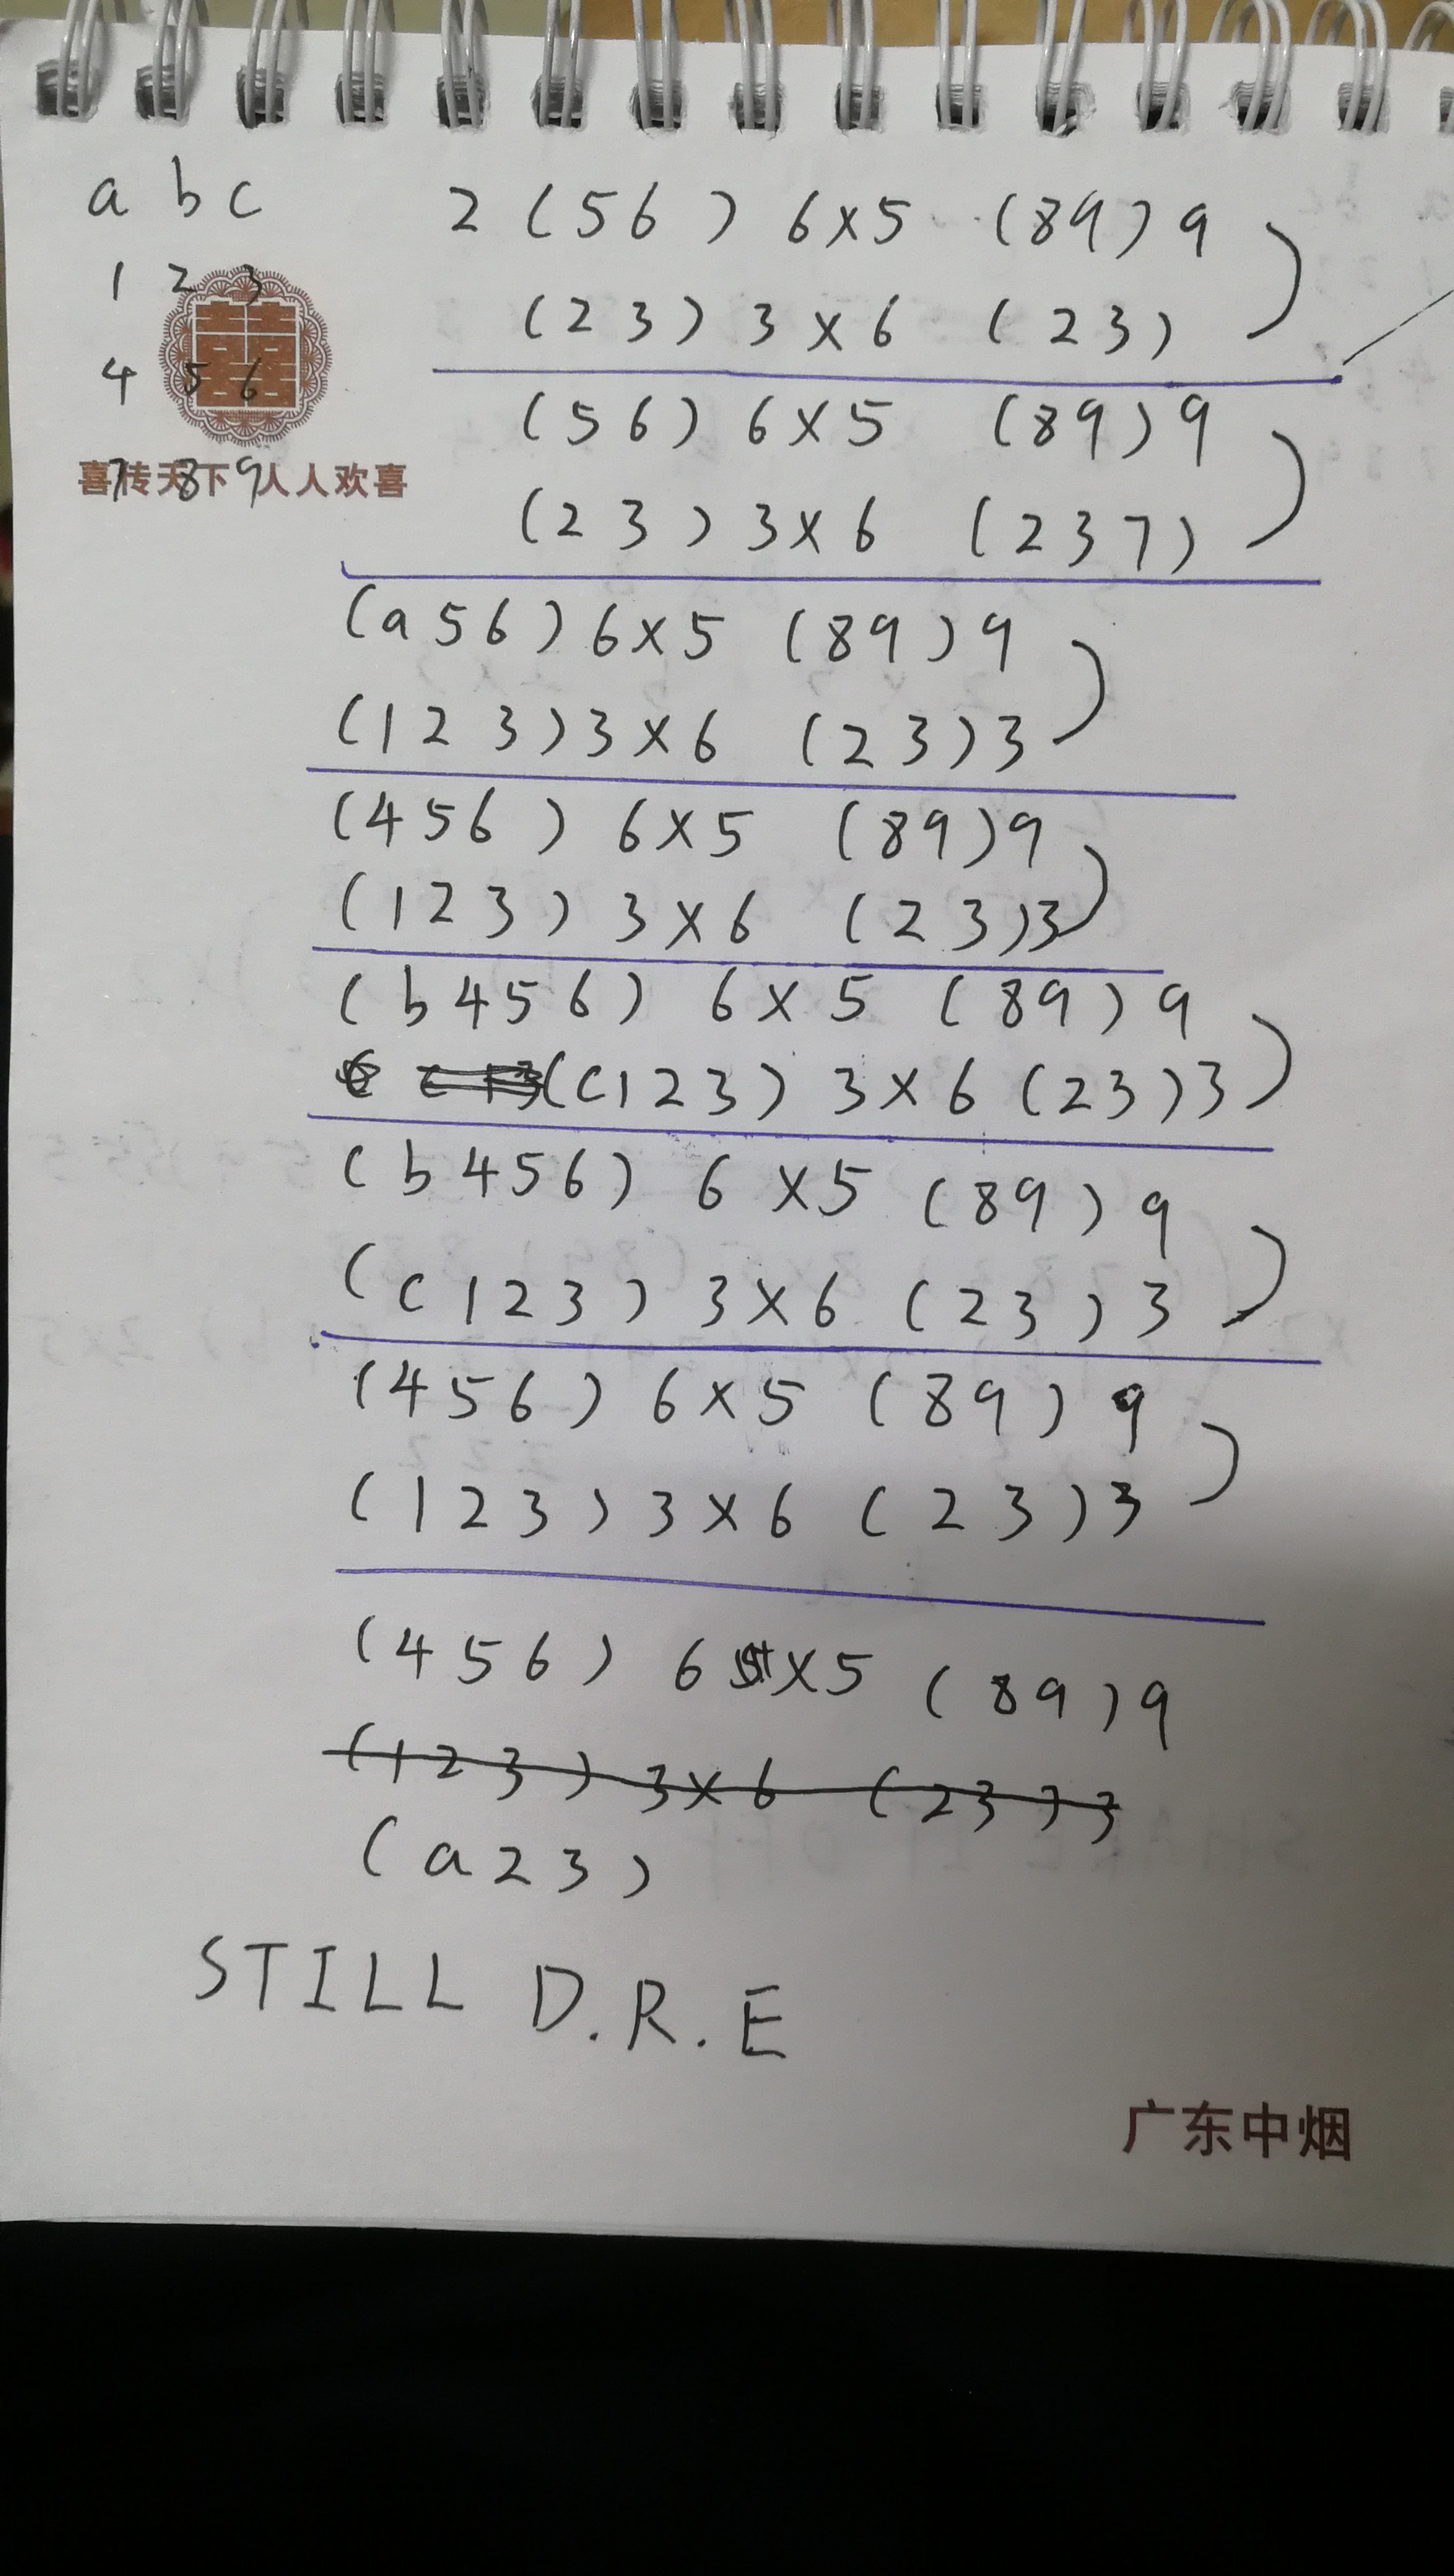 a b c
1 2 3
4 5 6
7 8 9
喜传天下人人欢喜
2 (56) 6×5 (89) 9
(23) 3×6 (23)
(56) 6×5 (89) 9
(23) 3×6 (237)
(a56) 6×5 (89) 9
(123) 3×6 (23) 3
(456) 6×5 (89) 9
(123) 3×6 (23) 3
(b456) 6×5 (89) 9
(c123) 3×6 (23) 3
(b456) 6×5 (89) 9
(c123) 3×6 (23) 3
(456) 6×5 (89) 9
(123) 3×6 (23) 3
(456) 6×5 (89) 9
(123) 3×6 (23) 3
(a23)
STILL D.R.E
广东中烟